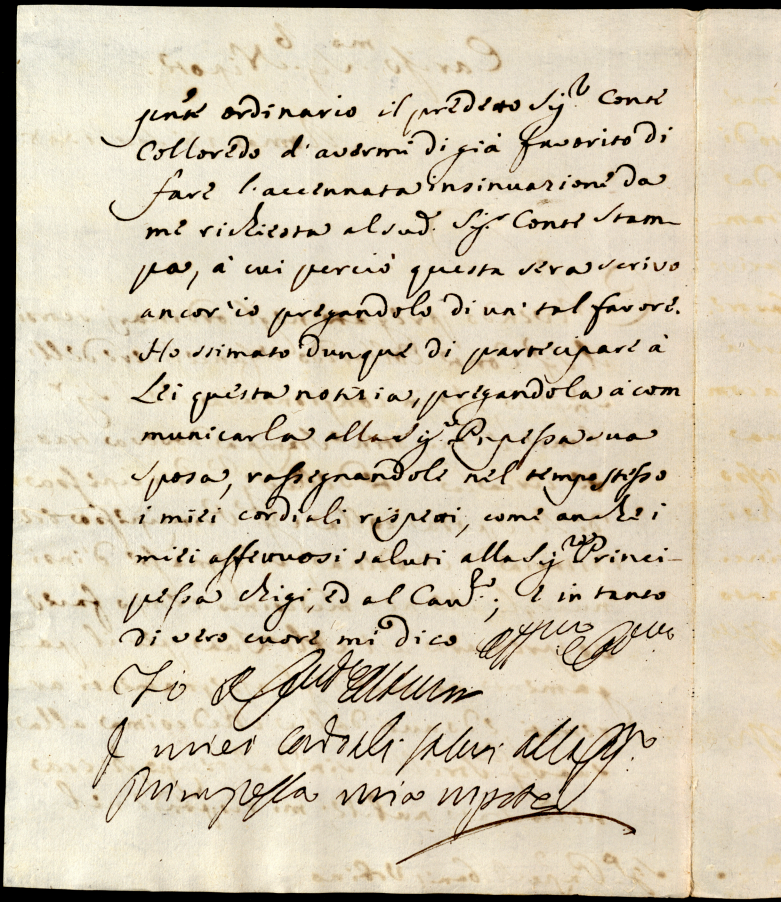 sente ordinario il predetto Sig.r Conte
Colloredo d'avermi di già favorito di
fare l'accennata insinuazione da
me richiesta al sud.o Sig.r Conte Stam-
pa, à cui perciò questa sera scrivo
ancor'io pregandolo di un' tal favore.
Ho stimato dunque di partecipare à
Lei questa notizia, pregandola à com
municarla alla Sig.ra P.npessa sua
sposa, rassegnandole nel tempo stesso
i miei cordiali rispetti, come anche i
miei affettuosi saluti alla Sig.ra Princi-
pessa Chigi, ed al Cav.re; e in tanto
di vero cuore mi dico
Zio
I miei cordiali saluti alla Sig.ra
Principessa mia nipote